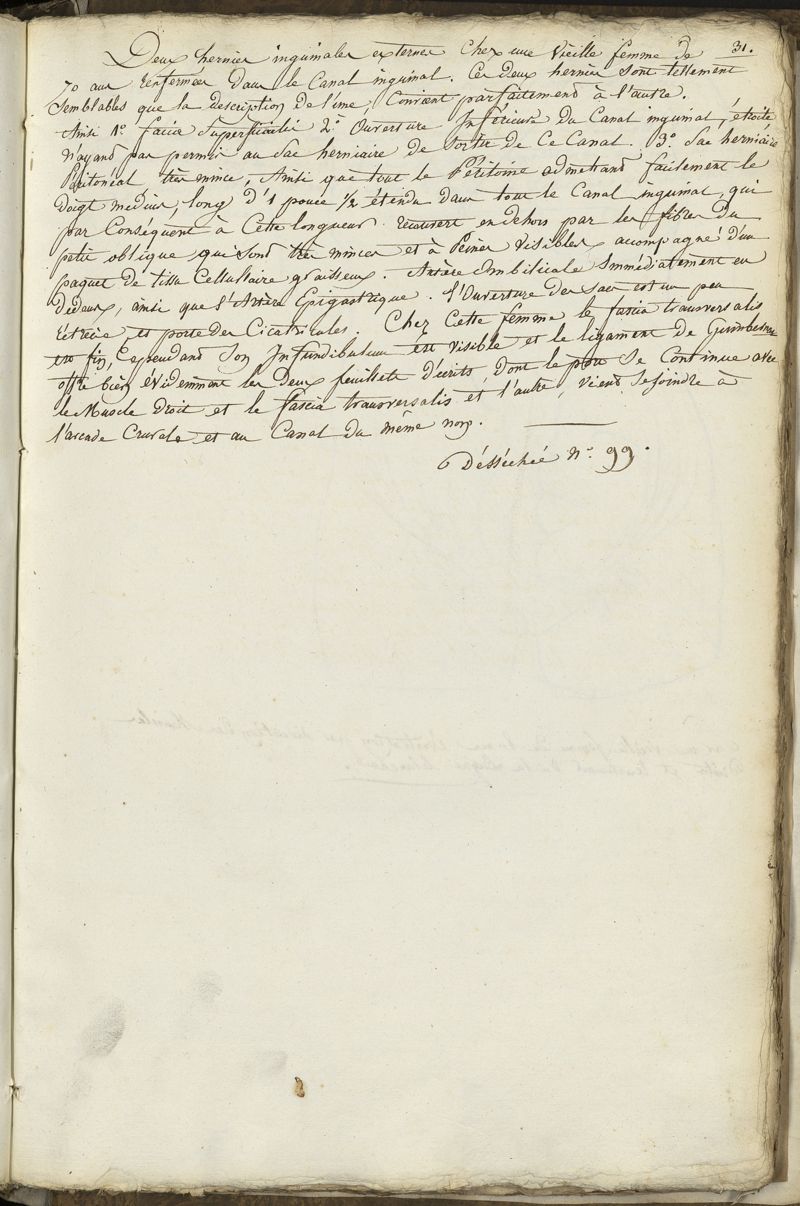 31.
Deux hernies inguinales externes chez une vieille femme de
70 ans renfermées dans le Canal inguinal. Ces deux hernies sont tellement
Semblables que la description de l'une, Convient parfaitement à l'autre.
Ainsi 1º. facia Superficialis 2º. Ouverture Inférieure du Canal inguinal, étroite
N'ayand pas permis au Sac herniaire de Sortir de Ce Canal. 3º. Sac herniaire
Péritonéal très mince, Ainsi que tout le Péritoine admettand facilement le
doigt medius, long d'1 pouce 1/2 étendu dans tout le Canal inguinal, qui
par Conséquent à Cette longueur. recouvert en dehors par les fibres du
petit oblique qui sond très minces et à Peines Visibles, accompagné d'un
paquet de tissu Cellullaire graisseux. Artère Ombilicale Immédiatement en
Dedans, ainsi que l'Artère Epigastrique. l'Ouverture des Sacs est un peu
rétrécie, et porte des Cicatricules. Chez Cette femme le fascia transversalis
est fin, Cependand Son Infundibulum est visible et le ligament de Gimbernat
offre bien évidemment les Deux feuillets décrits, dont le Se Continue avec
le Muscle droit et le fascia transversalis et l'autre, viend Sejoindre à
l'arcade Crurale et au Canal du même nom.
Désséchée Nº. 99.